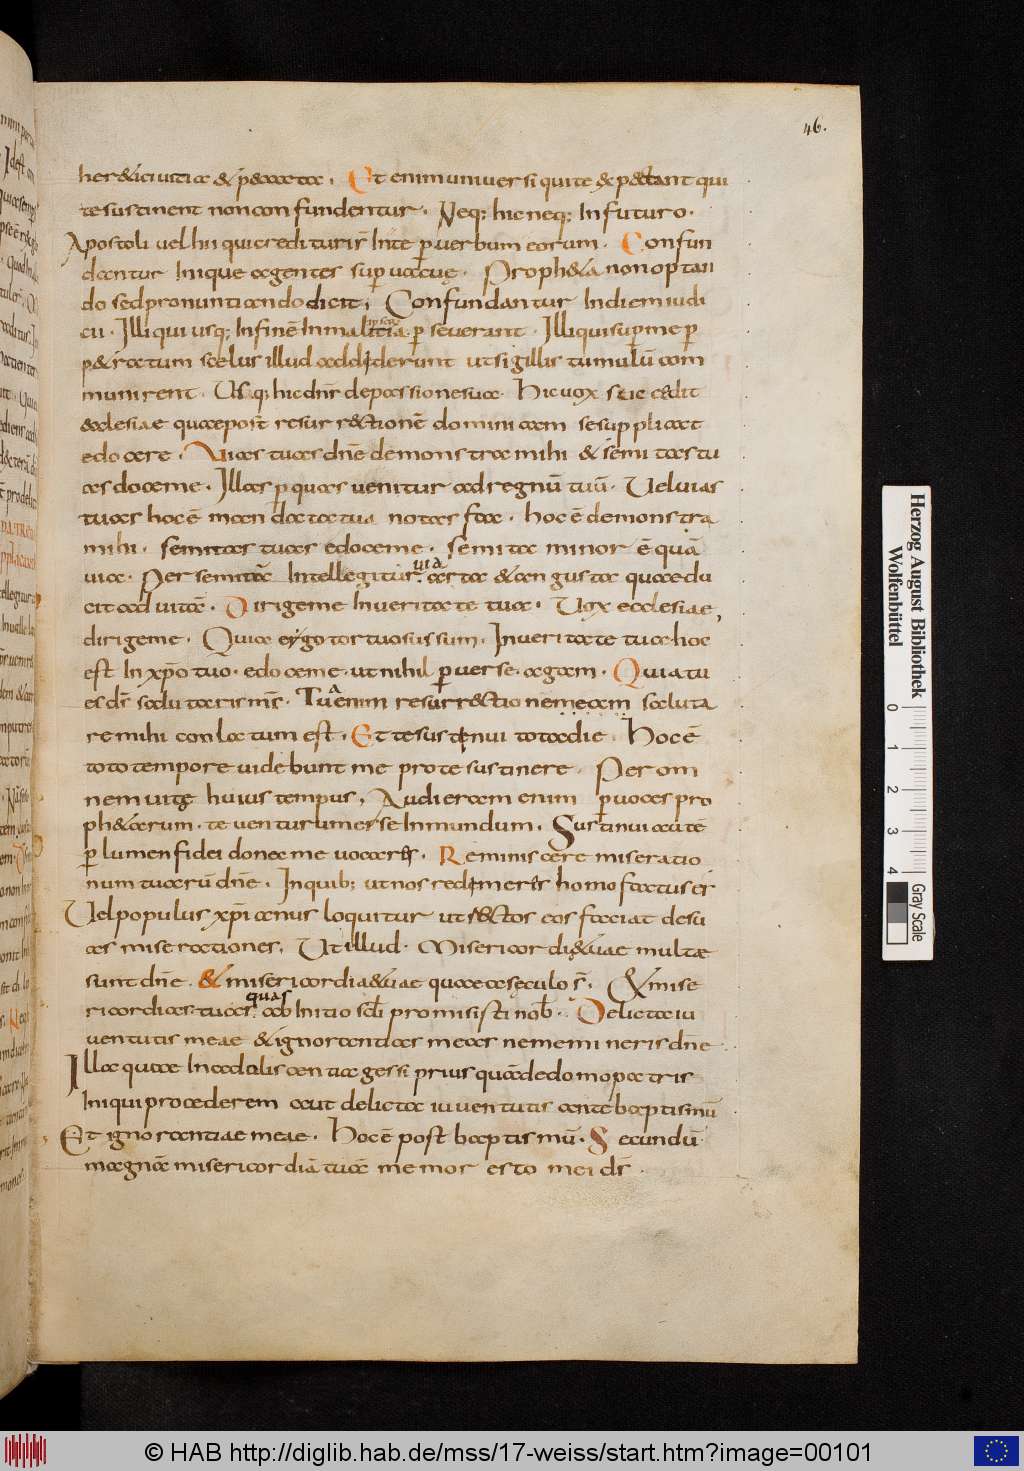 46.
her&ici uitia & p&cata. Et enim uniuersi qui te exp&ctant qui
te sustinent non confundentur. Neq; hic neq; In futuro.
Apostoli uel hii qui credituri sr̄ In te p̱ uerbum eorum. Confun
dantur Inique agentes sup uacuę. Proph&a non optan
do sed pronuntiando dicit, Confundantur In diem iudi
cii. Illi qui usq; In finē In malitia p̱seuerant. Illi qui sup me p̱
p&ratum scelus illud addiderunt ut sigillis tumulū com
munirent. Usq; hic dn̄s de passione sua. Hic uox succedit
&cclesiae quae post resurr&ctionē dominicam se supplicat
edocere. Uias tuas dn̄e demonstra mihi & semitas tu
as doce me. Illas p̱ quas uenitur ad regnū tuū. Uel uias
tuas hoc ē mandata tua notas fac. hoc ē demonstra
mihi. semitas tuas edoce me. semita minor ē quā
uia. Per semitā Intellegitur uia arta & angusta quae du
cit ad uitā. Dirige me In ueritate tua. Uox ecclesiae,
dirige me. Quia ergo tortuosus sum. In ueritate tua hoc
est In xp̄o tuo. edoce me. ut nihil p̱uerse agam. Quia tu
es ds̄ salutaris ms̄. Tua enim resurr&ctio nem eam saluta
re mihi conlatum est. Et te sustenui tota die. Hoc ē
toto tempore uidebunt me pro te sustinere. Per om
nem uitę huius tempus, Audieram enim p̱ uoces pro
ph&arum. te uenturum esse In mundum. Sustinui aut̄ te
p̱ lumen fidei donec me uocares. Reminiscere miseratio
num tuarū dn̄e. Inquib; ut nos redimeres homo factus es
Uel populus xp̄ianus loquitur ut r&ctos eos faciat de su
as miserationes. Ut illud. Misericordi&uae multae
sunt dn̄e. & misericordia&uae quae a sęculo s̄. & mise
ricordias tuas. quas ab Initio scd̄i promisisti nob̄. Delicta iu
uentutis meae & ignorantias meas ne memineris dn̄e.
Illa quae In adoliscentia gessi prius quā de domo patris
Iniqui procederem aut delicta iuuentutis ante baptismū
Et ignorantiae meae. Hoc ē post baptismū. Secundū
magnā misericordiā tuā memor esto mei ds̄.
Herzog August Bibliothek
Wolfenbüttel
0 1 2 3 4
Gray Scale
© HAB http://diglib.hab.de/mss/17-weiss/start.htm?image=00101